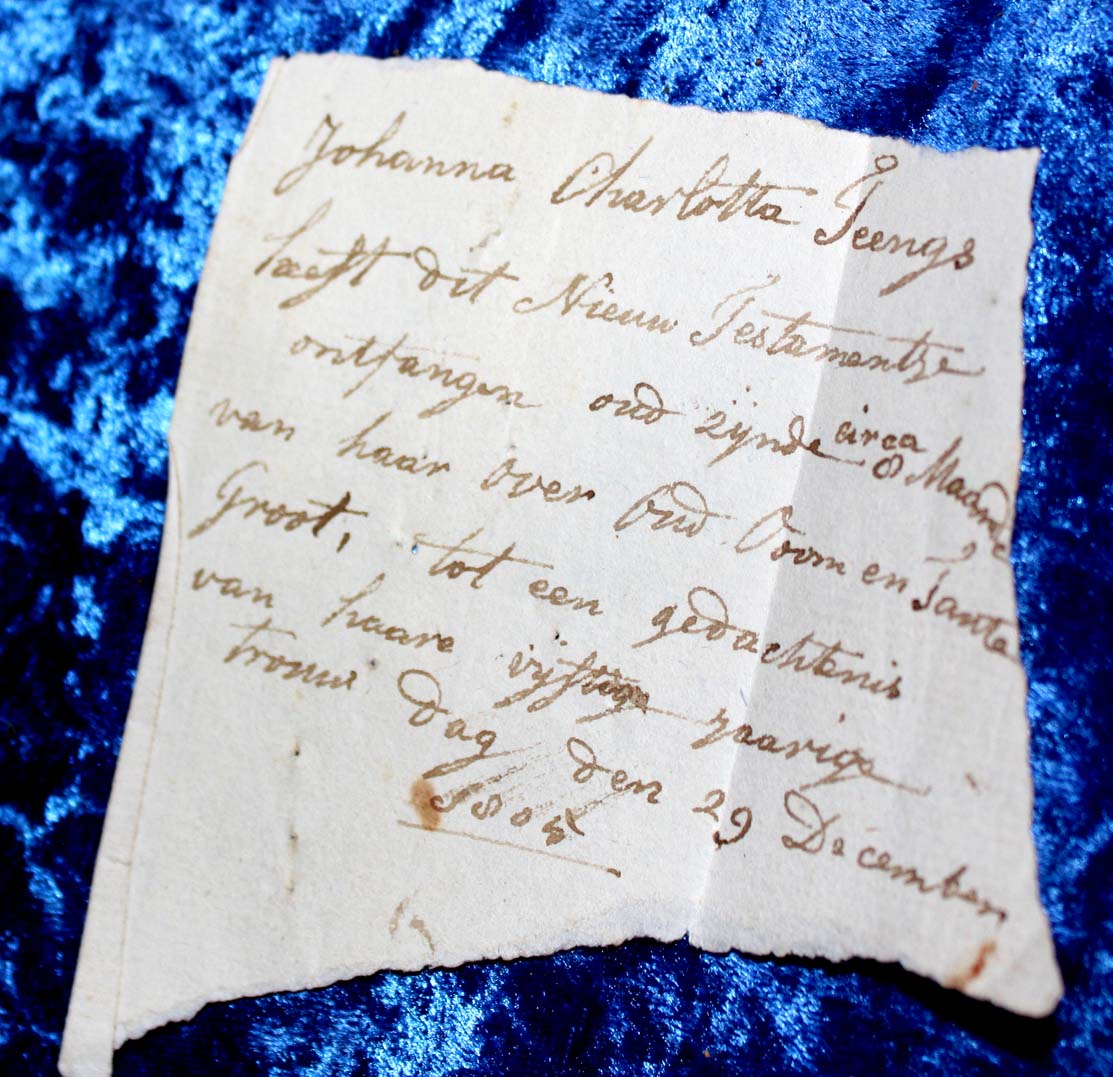 Johanna Charlotta Teengs
heeft dit Nieuw Testamentje
ontfangen oud zijnde circa 8 Maande
van haar over Oud Oom en Tante
Groot, tot een gedachtenis
van haare vijftige jaarige
trouw dag den 29 December
1805